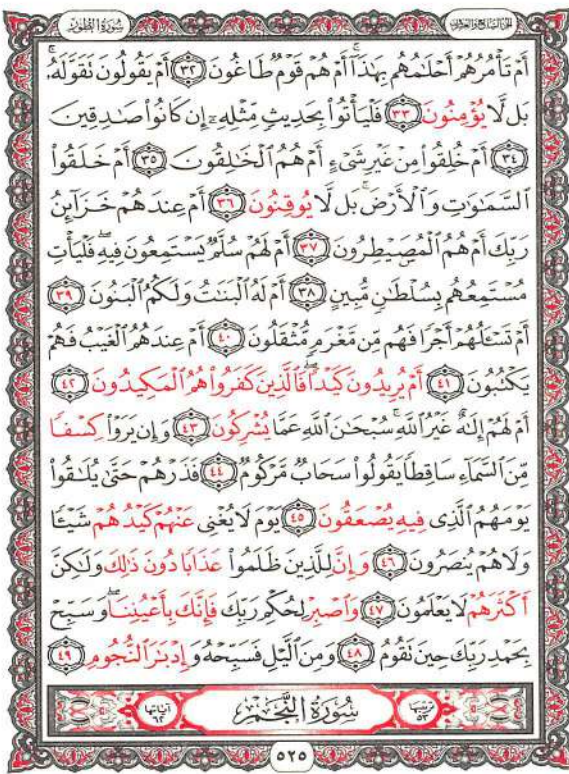 سُورَةُ الطُّورِ
الجُزْءُ السَّابِعُ وَالعِشْرُونَ
أَمْ تَأْمُرُهُمْ أَحْلَٰمُهُم بِهَٰذَآ ۚ أَمْ هُمْ قَوْمٌ طَاغُونَ ٣٢ أَمْ يَقُولُونَ تَقَوَّلَهُۥ ۚ
بَل لَّا يُؤْمِنُونَ ٣٣ فَلْيَأْتُوا۟ بِحَدِيثٍ مِّثْلِهِۦٓ إِن كَانُوا۟ صَٰدِقِينَ
٣٤ أَمْ خُلِقُوا۟ مِنْ غَيْرِ شَىْءٍ أَمْ هُمُ ٱلْخَٰلِقُونَ ٣٥ أَمْ خَلَقُوا۟
ٱلسَّمَٰوَٰتِ وَٱلْأَرْضَ ۚ بَل لَّا يُوقِنُونَ ٣٦ أَمْ عِندَهُمْ خَزَآئِنُ
رَبِّكَ أَمْ هُمُ ٱلْمُصَۣيْطِرُونَ ٣٧ أَمْ لَهُمْ سُلَّمٌ يَسْتَمِعُونَ فِيهِ ۖ فَلْيَأْتِ
مُسْتَمِعُهُم بِسُلْطَٰنٍ مُّبِينٍ ٣٨ أَمْ لَهُ ٱلْبَنَٰتُ وَلَكُمُ ٱلْبَنُونَ ٣٩
أَمْ تَسْـَٔلُهُمْ أَجْرًا فَهُم مِّن مَّغْرَمٍ مُّثْقَلُونَ ٤٠ أَمْ عِندَهُمُ ٱلْغَيْبُ فَهُمْ
يَكْتُبُونَ ٤١ أَمْ يُرِيدُونَ كَيْدًا ۖ فَٱلَّذِينَ كَفَرُوا۟ هُمُ ٱلْمَكِيدُونَ ٤٢
أَمْ لَهُمْ إِلَٰهٌ غَيْرُ ٱللَّهِ ۚ سُبْحَٰنَ ٱللَّهِ عَمَّا يُشْرِكُونَ ٤٣ وَإِن يَرَوْا۟ كِسْفًا
مِّنَ ٱلسَّمَآءِ سَاقِطًا يَقُولُوا۟ سَحَابٌ مَّرْكُومٌ ٤٤ فَذَرْهُمْ حَتَّىٰ يُلَٰقُوا۟
يَوْمَهُمُ ٱلَّذِى فِيهِ يُصْعَقُونَ ٤٥ يَوْمَ لَا يُغْنِى عَنْهُمْ كَيْدُهُمْ شَيْـًٔا
وَلَا هُمْ يُنصَرُونَ ٤٦ وَإِنَّ لِلَّذِينَ ظَلَمُوا۟ عَذَابًا دُونَ ذَٰلِكَ وَلَٰكِنَّ
أَكْثَرَهُمْ لَا يَعْلَمُونَ ٤٧ وَٱصْبِرْ لِحُكْمِ رَبِّكَ فَإِنَّكَ بِأَعْيُنِنَا ۖ وَسَبِّحْ
بِحَمْدِ رَبِّكَ حِينَ تَقُومُ ٤٨ وَمِنَ ٱلَّيْلِ فَسَبِّحْهُ وَإِدْبَٰرَ ٱلنُّجُومِ ٤٩
ترتيبها ٥٣ سُورَةُ النَّجْمِ آياتها ٦٢
٥٢٥